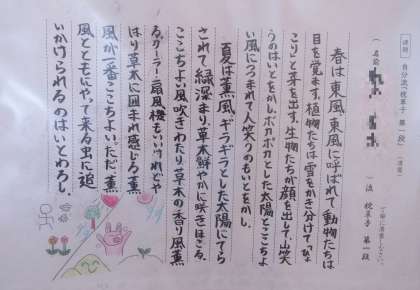 〔課題〕自分流「枕草子 第一段」〈清書〉
丁寧に清書しなさい。
〈名前
〉流 枕草子 第一段
春は東風。東風に呼ばれて動物たちは
目を覚ます。植物たちは雪をかき分けて「ひょ
こり」と芽を出す。生物たちが顔を出して、山笑
うのはいとをかし。ポカポカとした太陽とここちよ
い風につつまれて人笑うのもいとをかし。
夏は薫風。ギラギラとした太陽にてら
されて緑深まり、草木鮮やかに咲きほこる。
ここちよい風吹きわたり、草木の香り風薫
る。クーラー、扇風機もいいけれどや
はり草木に囲まれ感じる薫
風が一番ここちよい。ただ、薫
風とともにやって来る虫に追
いかけられるのはいとわろし。